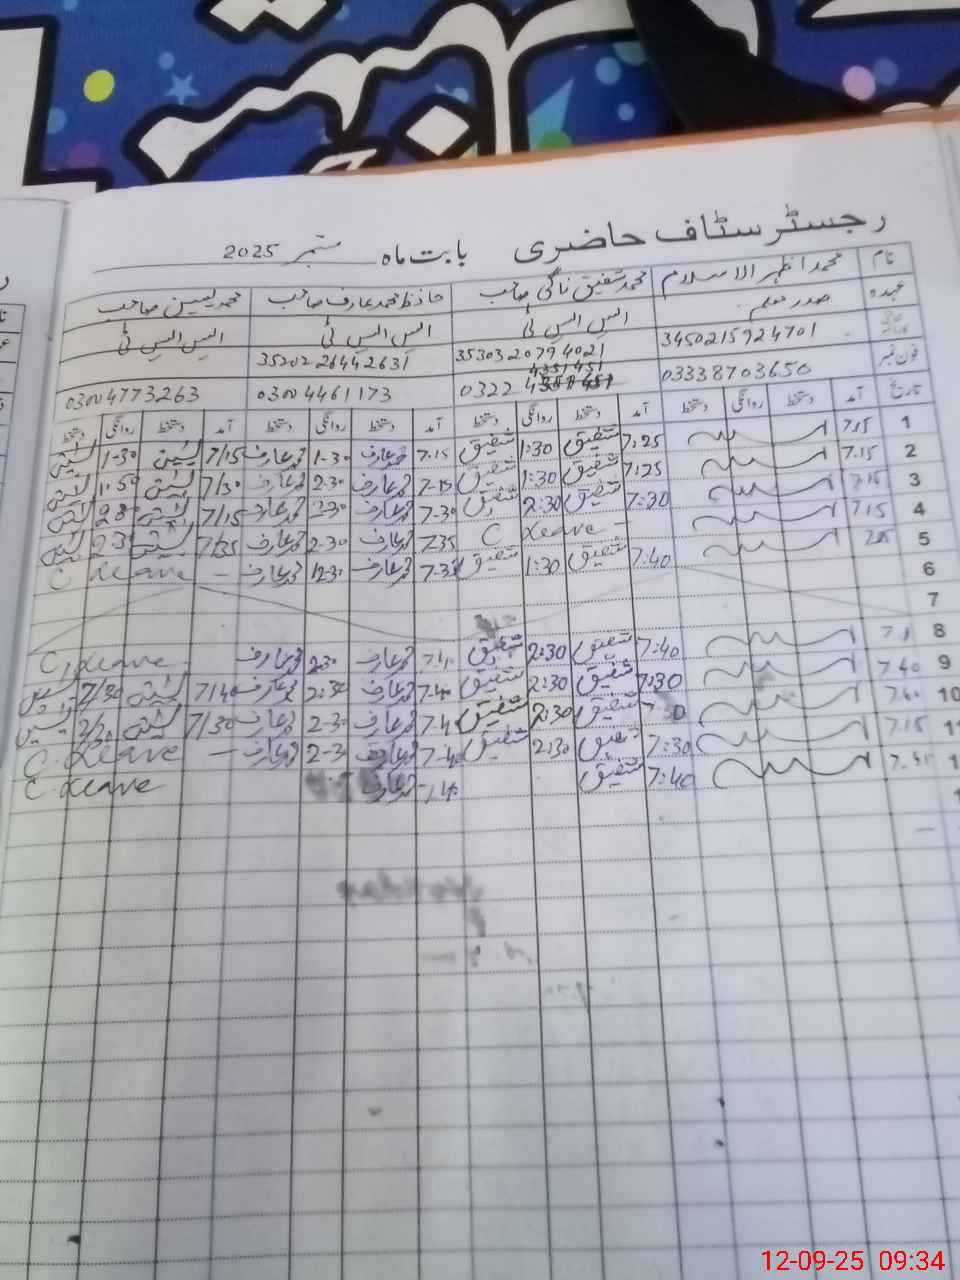 رجسٹر سٹاف حاضری بابت ماہ ستمبر 2025
نام محمد اظہر الاسلام محمد شفیق ناگی صاحب حافظ محمد عارف صاحب محمد یسین صاحب
عہدہ صدر معلم ایس ایس ٹی ایس ایس ٹی ایس ایس ٹی
3450215924701 3530320794021 35202-26442631
فون نمبر 03338703650 0322 4351451 0300 4461173 0300 4773263
تاریخ آمد دستخط روانگی دستخط آمد دستخط روانگی دستخط آمد دستخط روانگی دستخط آمد دستخط روانگی دستخط
1 7.15 7:25 شفیق 1:30 شفیق 7.15 محمد عارف 1-30 محمد عارف 7/15 یسین 1-30 یسین
2 7.15 7:25 شفیق 1:30 شفیق محمد عارف 2-30 محمد عارف 7/30 یسین 1.50 یسین
3 7.15 7:30 شفیق 2:30 شفیق 7-30 محمد عارف محمد عارف 7/15 یسین یسین
4 7.15 C Leave - 7.35 محمد عارف 2-30 محمد عارف 7/35 یسین یسین
5 7:40 شفیق 1:30 شفیق محمد عارف 12-30 محمد عارف C Leave -
6
7
8 7:40 شفیق 2:30 شفیق محمد عارف 2-30 محمد عارف C, Leave
9 7.40 7:30 شفیق 2:30 شفیق محمد عارف 2:30 محمد عارف یسین
10 شفیق 2:30 شفیق محمد عارف 2-30 محمد عارف 7/30 یسین یسین
7.15 7:30 شفیق 2:30 شفیق محمد عارف محمد عارف C. Leave -
7:40 شفیق محمد عارف C. Leave
12-09-25 09:34